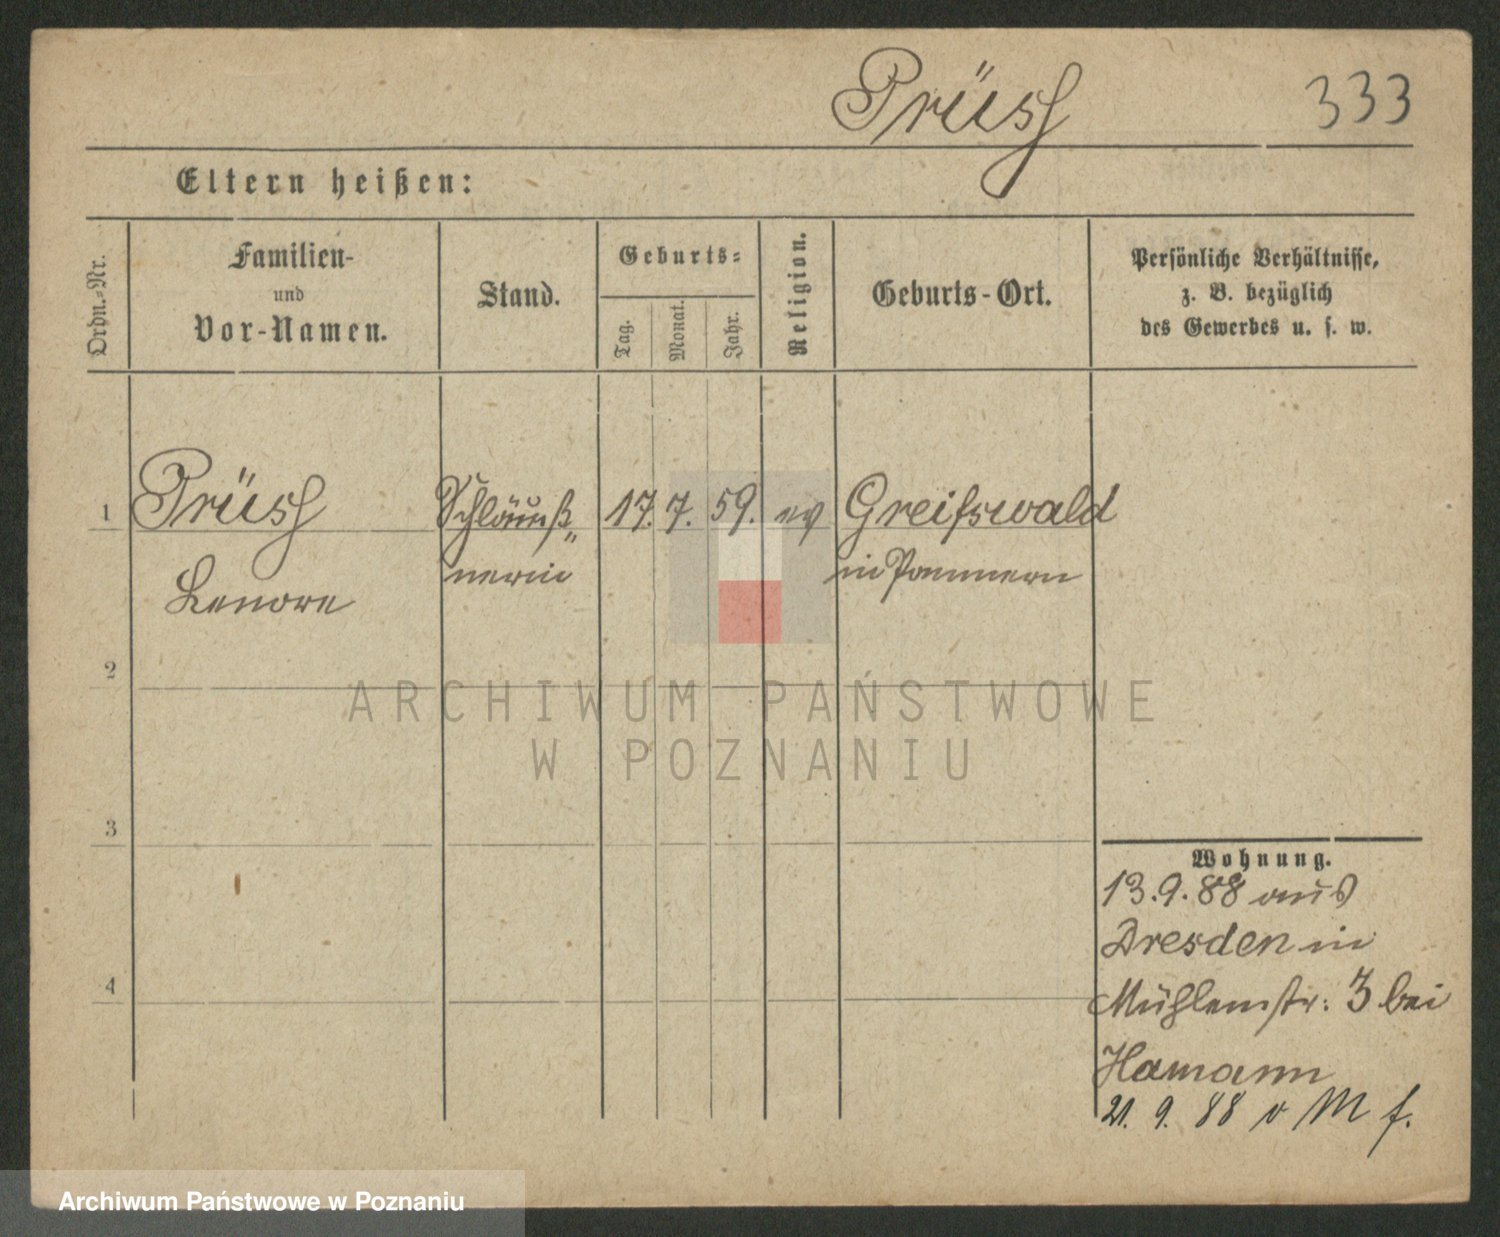 Prüsz
333
Eltern heißen:
Ordn.-Nr.
Familien-
und
Vor-Namen.
Stand.
Geburts-
Tag.
Monat.
Jahr.
Religion.
Geburts-Ort.
Persönliche Verhältnisse,
z. B. bezüglich
des Gewerbes u. s. w.
1 17. 7. 59. ev Greifswald
nerin in Pommern
Lenore
2
ARCHIWUM PAŃSTWOWE
W POZNANIU
3
4
Wohnung.
13.9.88 aus
Dresden in
Mühlenstr. 3 bei
Hamann
21. 9. 88 v M f.
Archiwum Państwowe w Poznaniu